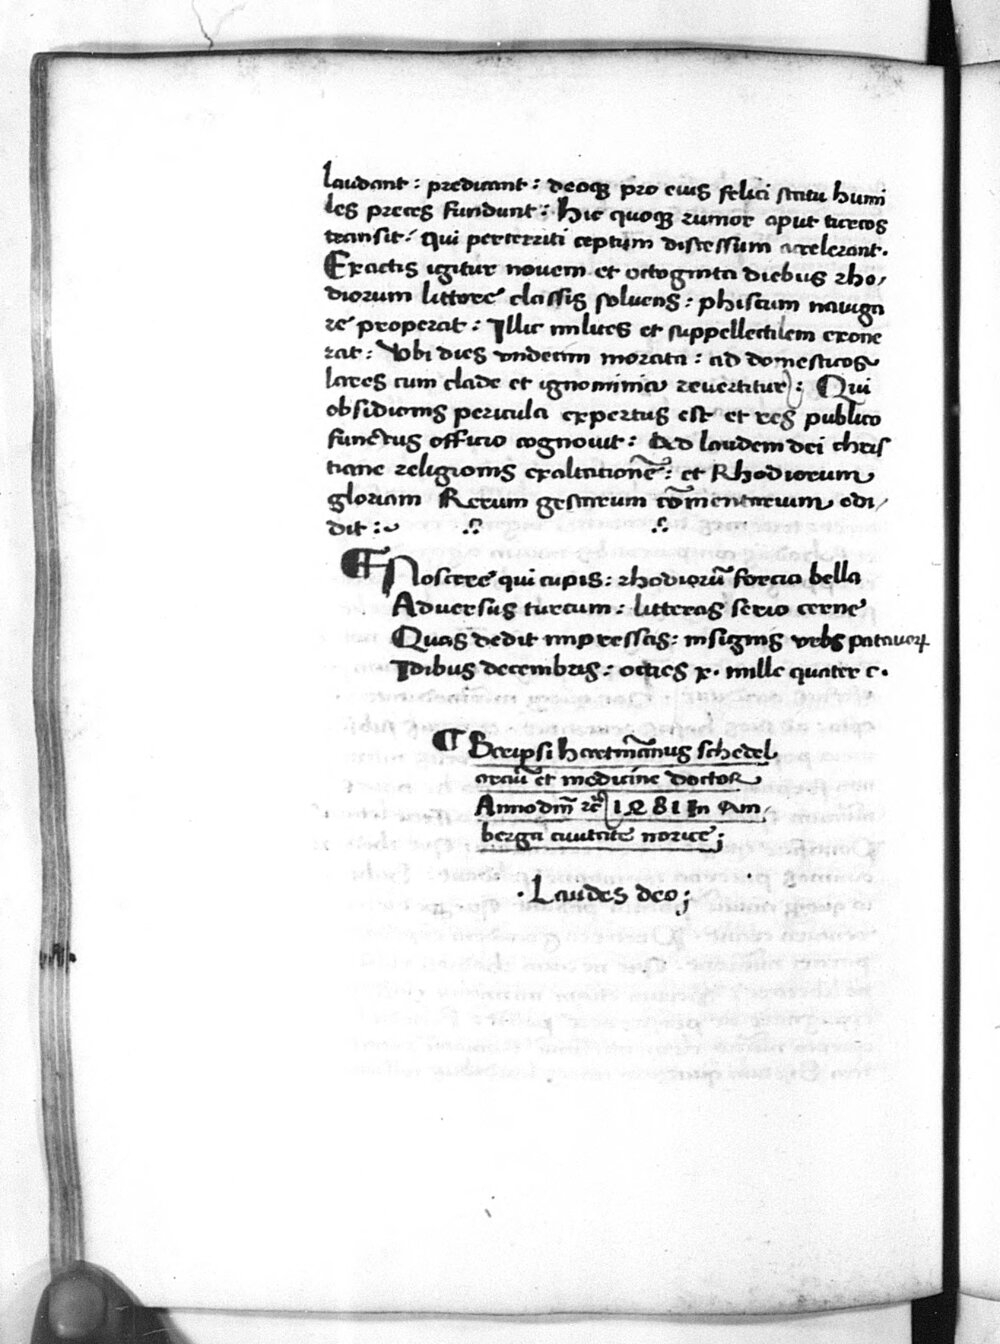 laudant : predicant : deoqꝫ pro eius felici statu humi
les preces fundunt : Hic quoqꝫ rumor aput turcos
transit : qui perterriti ceptum discessum accelerant.
Exactis igitur novem et octoginta diebus rho/
diorum littore classis solvens : phiscum naviga
re properat : Illic milites et suppellectilem exone
rat : Vbi dies undecim morata : ad domesticos
lares cum clade et ignominia revertitur : Qui
obsidionis pericula expertus est et res publico
functus officio cognovit : Ad laudem dei chris
tiane religionis exaltationē : et Rhodiorum
gloriam Rerum gestarum cōmentarium edi/
dit :
Noscere qui cupis : rhodiorū forcia bella
Adversus turcum : litteras serio cerne
Quas dedit impressas : insignis urbs patavoꝝ
Idibus decembris : octies x. mille quater c.
Scripsi Hartmānus schedel
arciū et medicine doctor
Anno dm̄ ⁊c 1481 In Am/
berga civitate norice ;
. Laudes deo ;